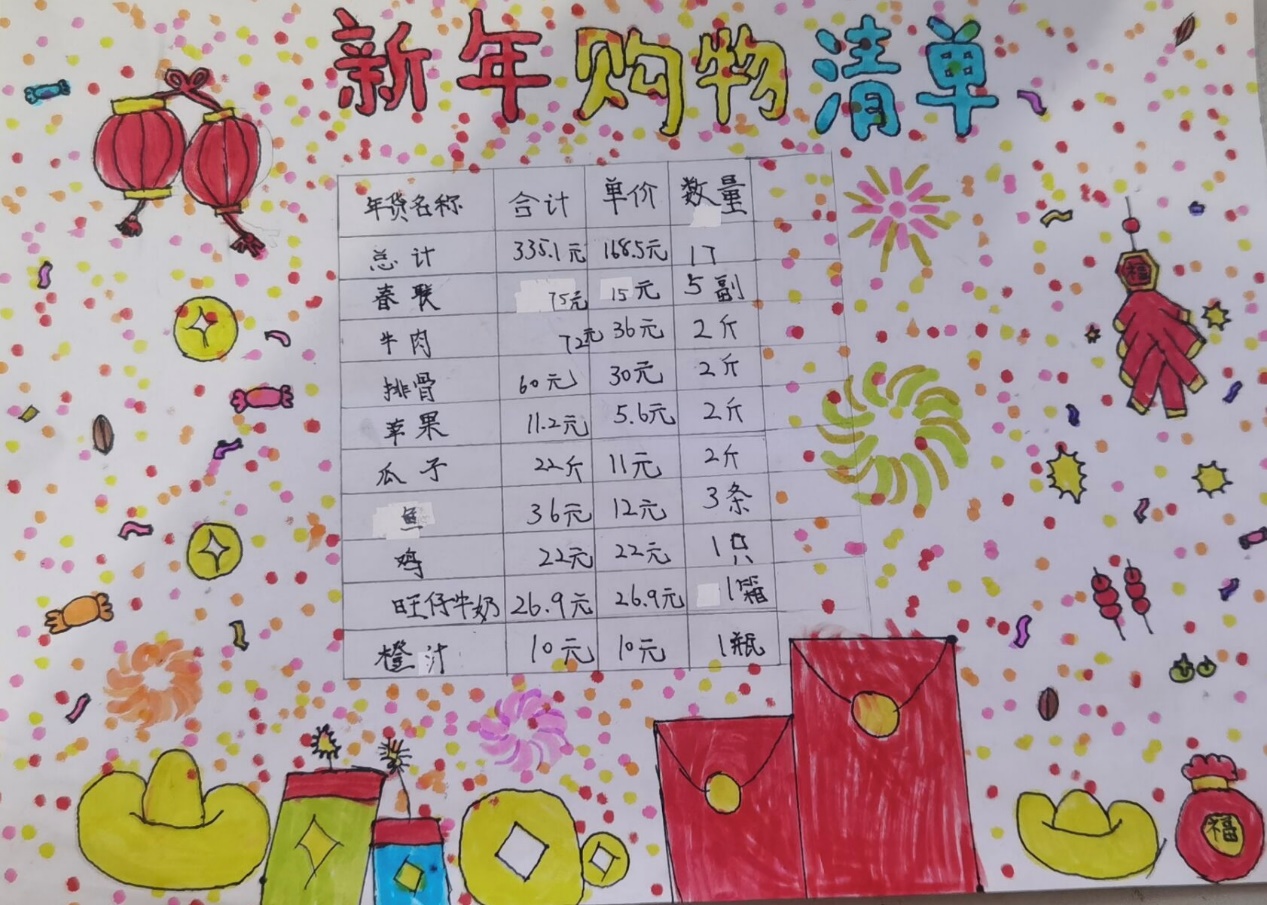 新年购物清单
年货名称 合计 单价 数量
总计 335.1元 168.5元 17
春联 75元 15元 5副
牛肉 72元 36元 2斤
排骨 60元 30元 2斤
苹果 11.2元 5.6元 2斤
瓜子 22斤 11元 2斤
鱼 36元 12元 3条
鸡 22元 22元 1只
旺仔牛奶 26.9元 26.9元 1箱
橙汁 10元 10元 1瓶
福
福